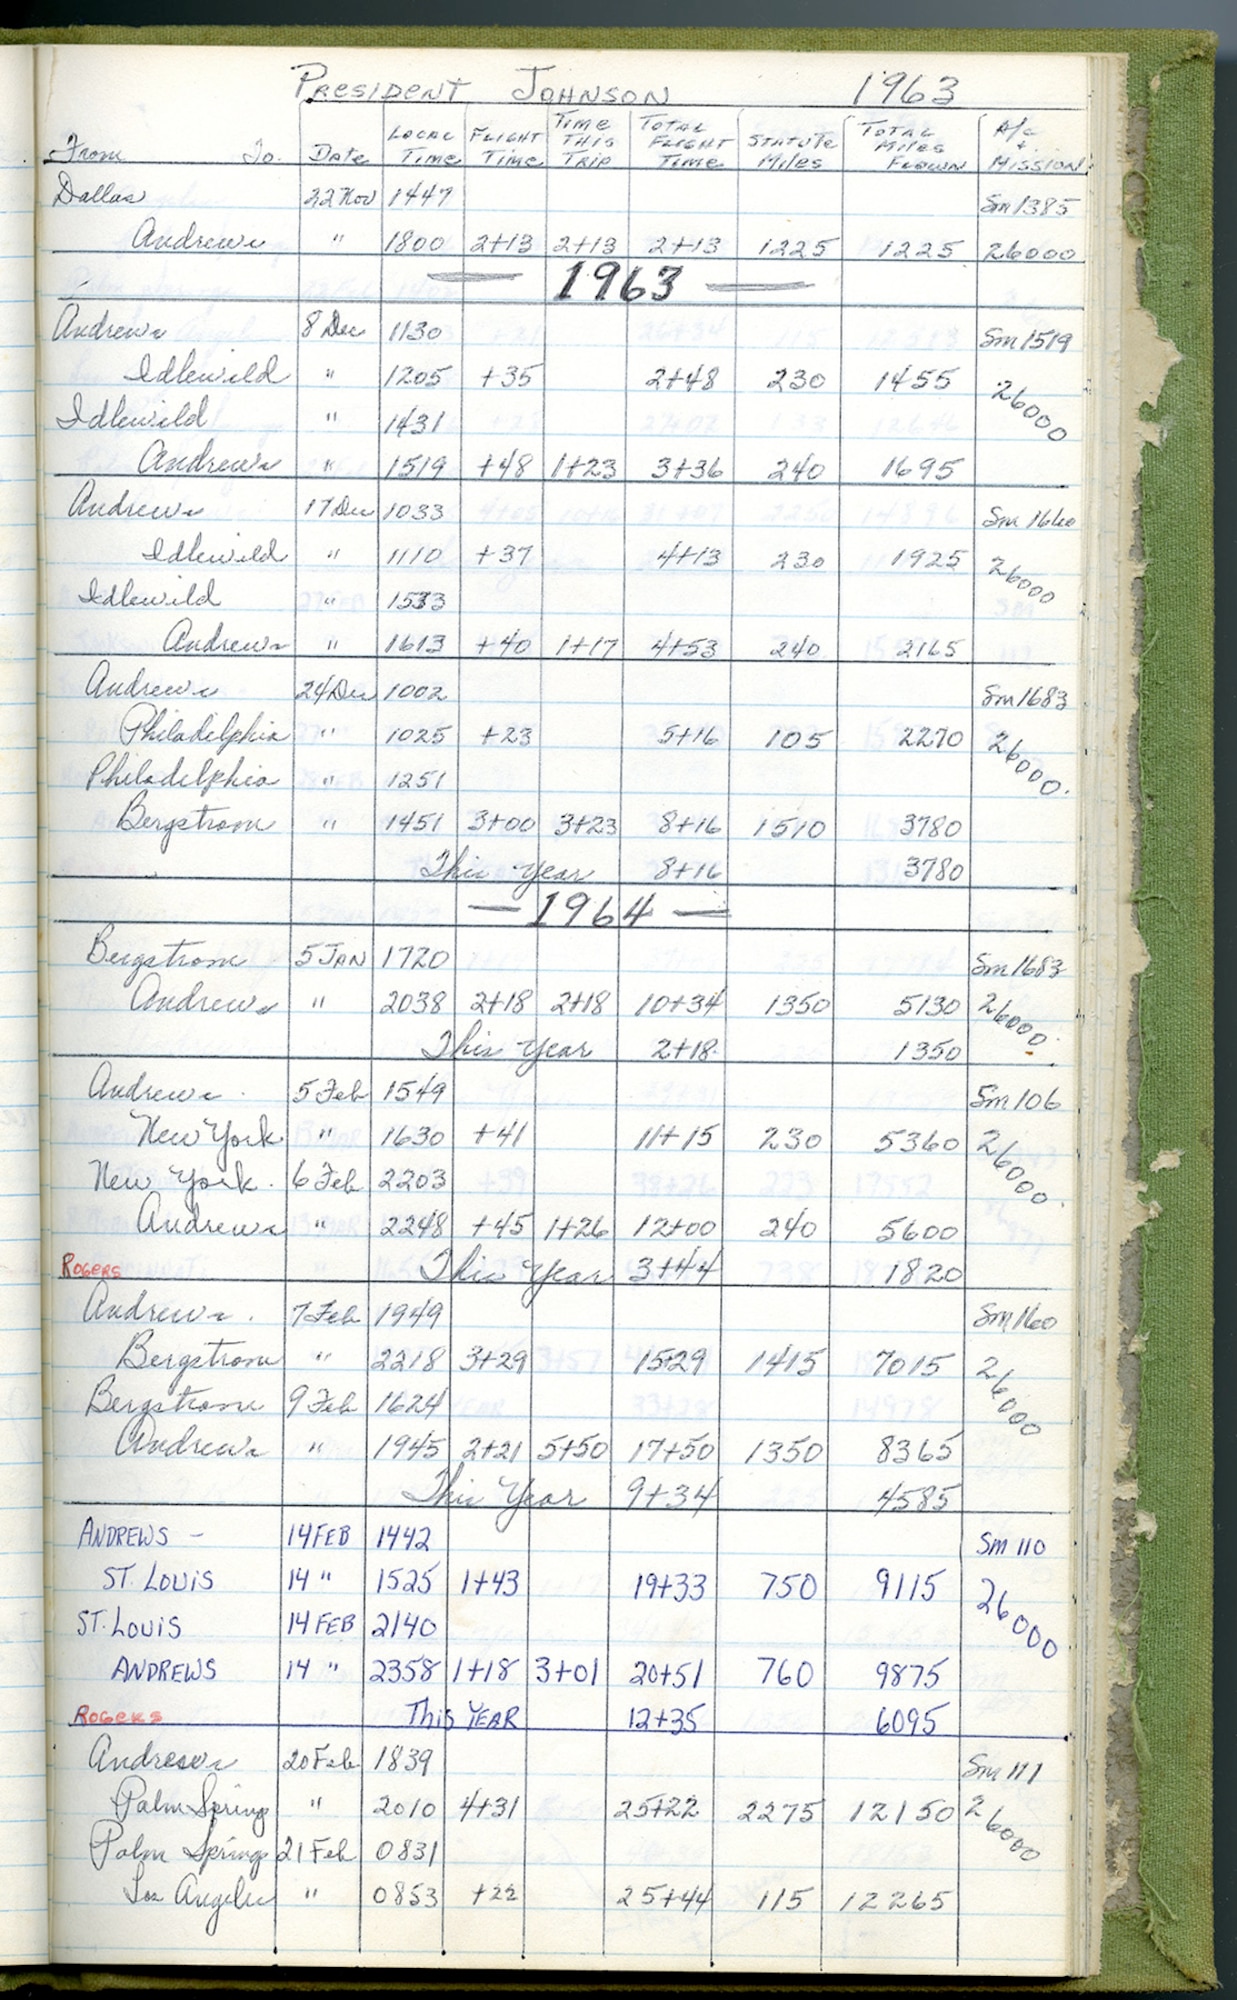 PRESIDENT JOHNSON 1963
From To. DATE LOCAL TIME FLIGHT TIME TIME THIS TRIP TOTAL FLIGHT TIME STATUTE MILES TOTAL MILES FLOWN A/C + MISSION
Dallas 22 Nov 1447 Sm 1385
Andrews " 1800 2+13 2+13 2+13 1225 1225 26000
— 1963 —
Andrews 8 Dec 1130 Sm 1519
Idlewild " 1205 +35 2+48 230 1455 26000
Idlewild " 1431
Andrews " 1519 +48 1+23 3+36 240 1695
Andrews 17 Dec 1033 Sm 1660
Idlewild " 1110 +37 4+13 230 1925 26000
Idlewild " 1533
Andrews " 1613 +40 1+17 4+53 240 2165
Andrews 24 Dec 1002 Sm 1683
Philadelphia " 1025 +23 5+16 105 2270 26000.
Philadelphia " 1251
Bergstrom " 1451 3+00 3+23 8+16 1510 3780
This year 8+16 3780
— 1964 —
Bergstrom 5 JAN 1720 Sm 1683
Andrews " 2038 2+18 2+18 10+34 1350 5130 26000.
This year 2+18 1350
Andrews. 5 Feb 1549 Sm 106
New York " 1630 +41 11+15 230 5360 26000
New York. 6 Feb 2203
Andrews " 2248 +45 1+26 12+00 240 5600
ROGERS This Year 3+44 1820
Andrews. 7 Feb 1949 Sm 160
Bergstrom " 2218 3+29 15+29 1415 7015 26000
Bergstrom 9 Feb 1624
Andrews " 1945 2+21 5+50 17+50 1350 8365
This Year 9+34 4585
ANDREWS - 14 FEB 1442 Sm 110
ST. LOUIS 14 " 1525 1+43 19+33 750 9115 26000
ST. LOUIS 14 FEB 2140
ANDREWS 14 " 2358 1+18 3+01 20+51 760 9875
ROGERS This YEAR 12+35 6095
Andrews 20 Feb 1839 Sm 111
Palm Springs " 2010 4+31 25+22 2275 12150 26000
Palm Springs 21 Feb 0831
Los Angeles " 0853 +22 25+44 115 12265